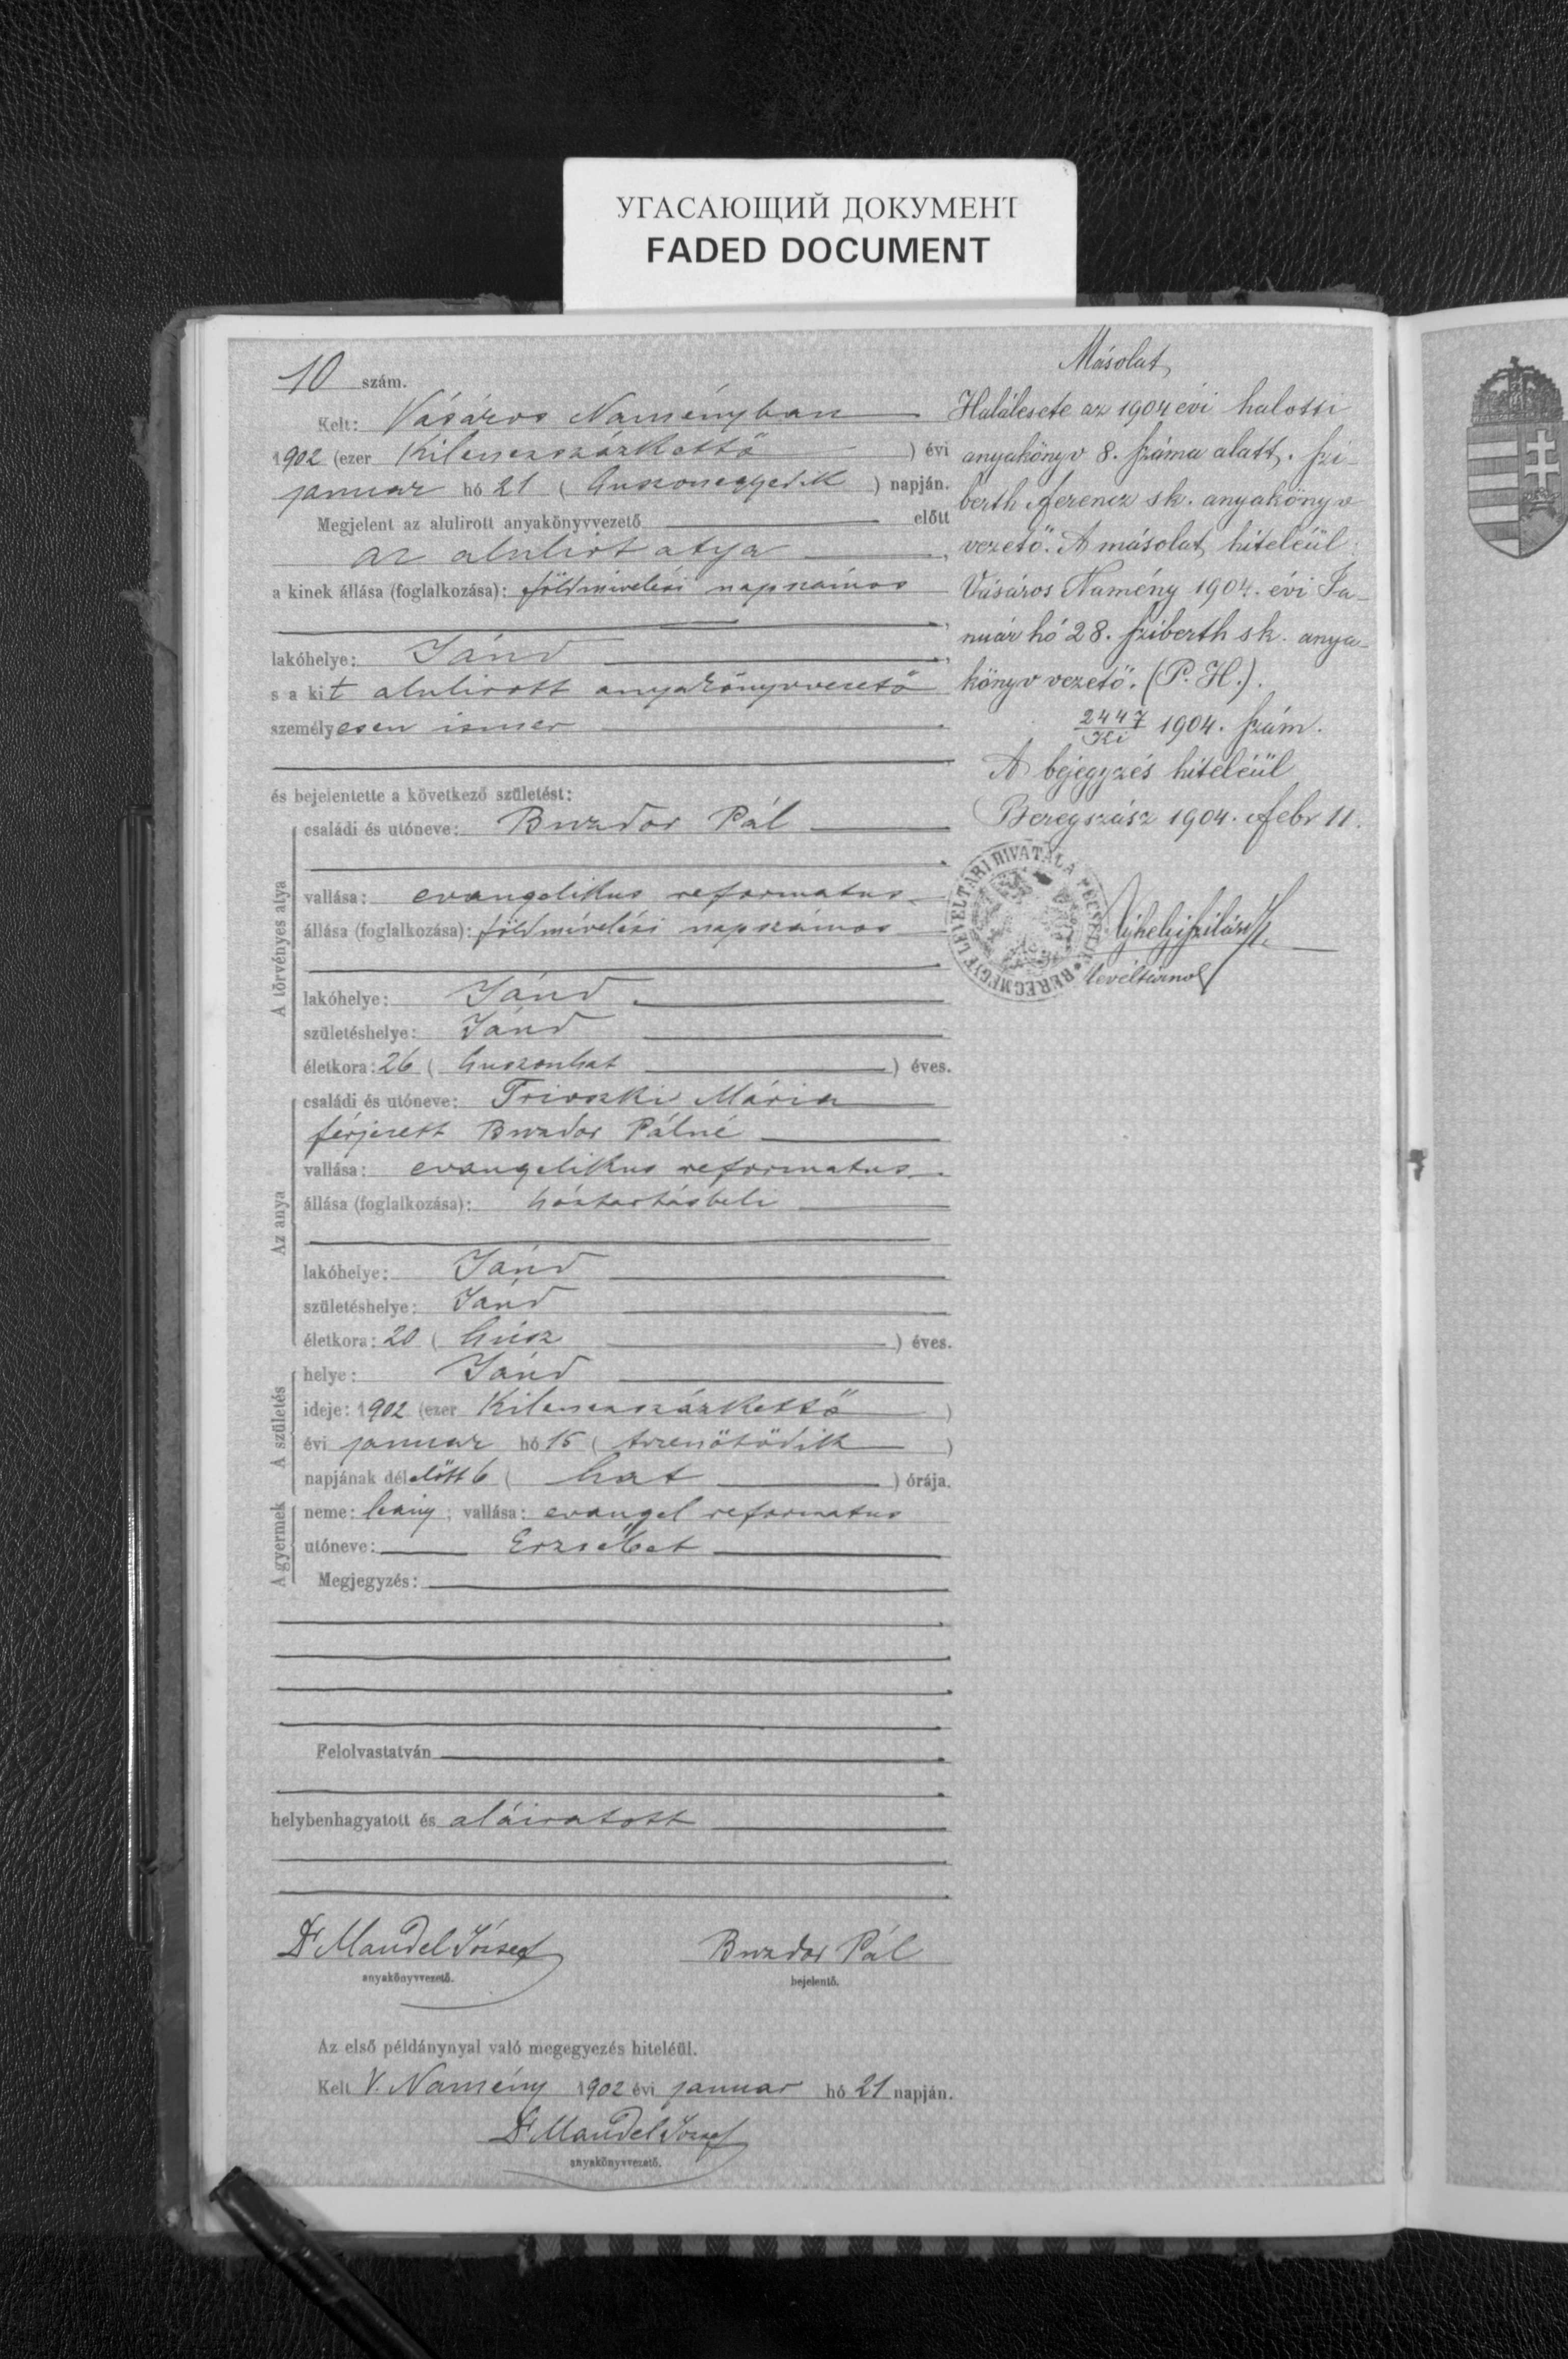 УГАСАЮЩИЙ ДОКУМЕНТ
FADED DOCUMENT
10 szám.
Kelt: Vásáros Naményban
1902 (ezer Kilenczszázkettő) évi
januar hó 21 (huszonegyedik) napján.
Megjelent az alulirott anyakönyvvezető előtt
az alulirt atya,
a kinek állása (foglalkozása): földmivelési napszámos
lakóhelye: Jánd,
s a kit alulirott anyakönyvvezető
személyesen ismer
és bejelentette a következő születést:
A törvényes atya
családi és utóneve: Buzdor Pál
vallása: evangelikus reformatus
állása (foglalkozása): földmívelési napszámos
lakóhelye: Jánd
születéshelye: Jánd
életkora: 26 (huszonhat) éves.
Az anya
családi és utóneve: Mária
férjezett Buzdor Pálné
vallása: evangelikus reformatus
állása (foglalkozása): háztartásbeli
lakóhelye: Jánd
születéshelye: Jánd
életkora: 20 (húsz) éves.
A születés
helye: Jánd
ideje: 1902 (ezer Kilenczszázkettő)
évi januar hó 15 (tizenötödik)
napjának délelőtt 6 (hat) órája.
A gyermek
neme: leány; vallása: evangel reformatus
utóneve: Erzsébet
Megjegyzés:
Felolvastatván
helybenhagyatott és aláiratott
Dr Mandel József
anyakönyvvezető.
Buzdor Pál
bejelentő.
Az első példánynyal való megegyezés hiteléül.
Kelt V. Namény 1902 évi januar hó 21 napján.
Dr Mandel József
anyakönyvvezető.
Másolat,
Halálesete az 1904 évi halotti
anyakönyv 8. száma alatt. Szi-
berth Ferencz sk. anyakönyv
vezető. A másolat hiteléül:
Vásáros Namény 1904. évi Ja-
nuár hó 28. Sziberth sk. anya-
könyv vezető. (P. H.).
2447
Ki 1904. szám.
A bejegyzés hiteléül
Beregszász 1904. Febr 11.
BEREGMEGYE LEVÉLTÁRI HIVATALA PECSÉTJE
levéltárnok